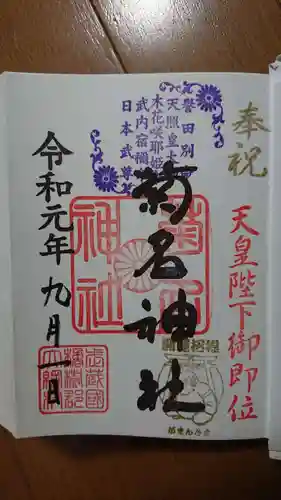 奉祝
天皇陛下御即位
誉田別
天照皇大
木花咲耶姫
武内宿禰
日本武尊
菊名神社
菊名神社
令和元年九月一日
武蔵国
橘樹郡